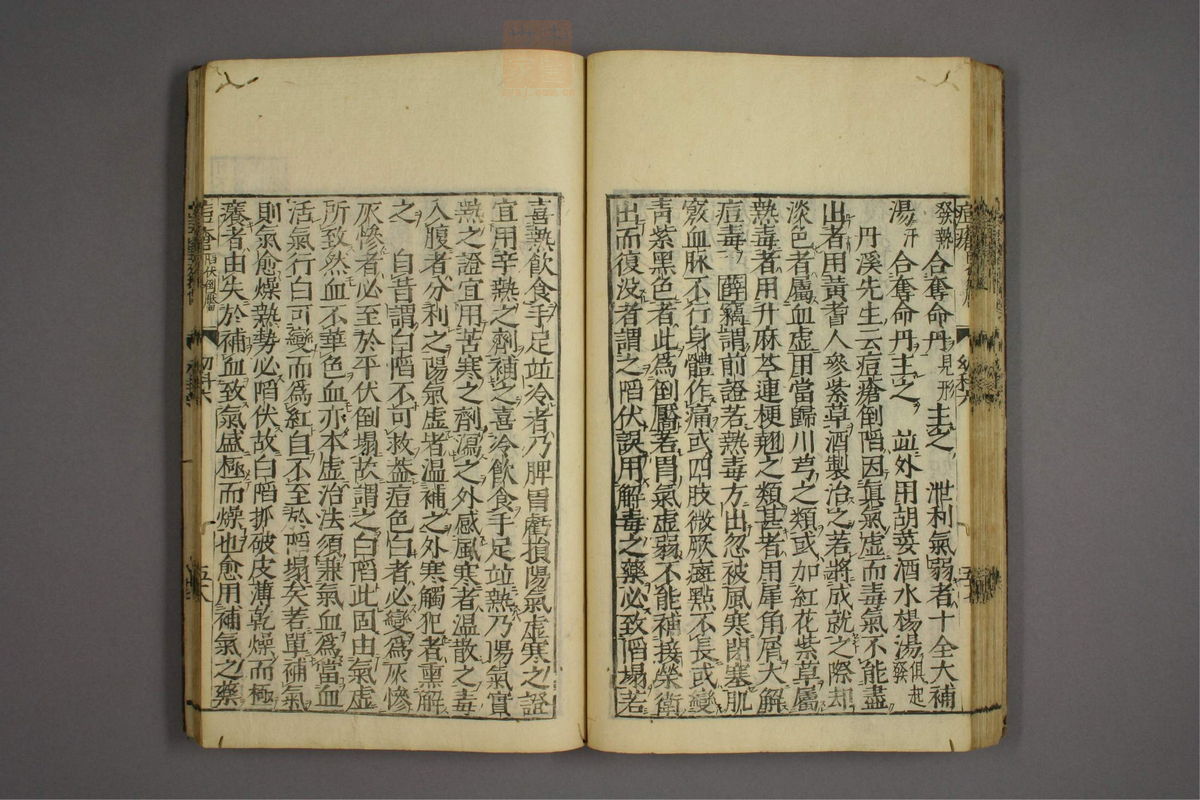 發熱合奪命丹見形主之　泄利氣弱者十全大補
湯汗合奪命丹主之　並外用胡荽酒水楊湯俱起發
丹溪先生云痘瘡倒陷因眞氣虛而毒氣不能盡
出者用黃耆人參紫草酒製治之若將成就之際却
淡色者屬血虛用當歸川芎之類或加紅花紫草屬
熱毒者用升麻芩連梗翹之類甚者用犀角屑大解
痘毒　薛竊謂前證若熱毒方出忽被風寒閉塞肌
竅血脉不行身體作痛或四肢微厥斑點不長或變
靑紫黑色者此爲倒靨若胃氣虛弱不能補接榮衛
出而復没者謂之陷伏誤用解毒之藥必致陷塌若
喜熱飮食手足竝冷者乃脾胃虧損陽氣虛寒之證
宜用辛熱之劑補之喜冷飮食手足竝熱乃陽氣實
熱之證宜用苦寒之劑瀉之外感風寒者溫散之毒
入腹者分利之陽氣虛者溫補之外寒觸犯者熏解
之　自昔謂白陷不可救葢痘色白者必變爲灰慘
灰慘者必至於平伏倒塌故謂之白陷此固由氣虛
所致然血不華色血亦本虛治法須兼氣血爲當血
活氣行白可變而爲紅自不至於陷塌矣若單補氣
則氣愈燥熱勢必陷伏故白陷抓破皮薄乾燥而極
癢者由失於補血致氣盛極而燥也愈用補氣之藥